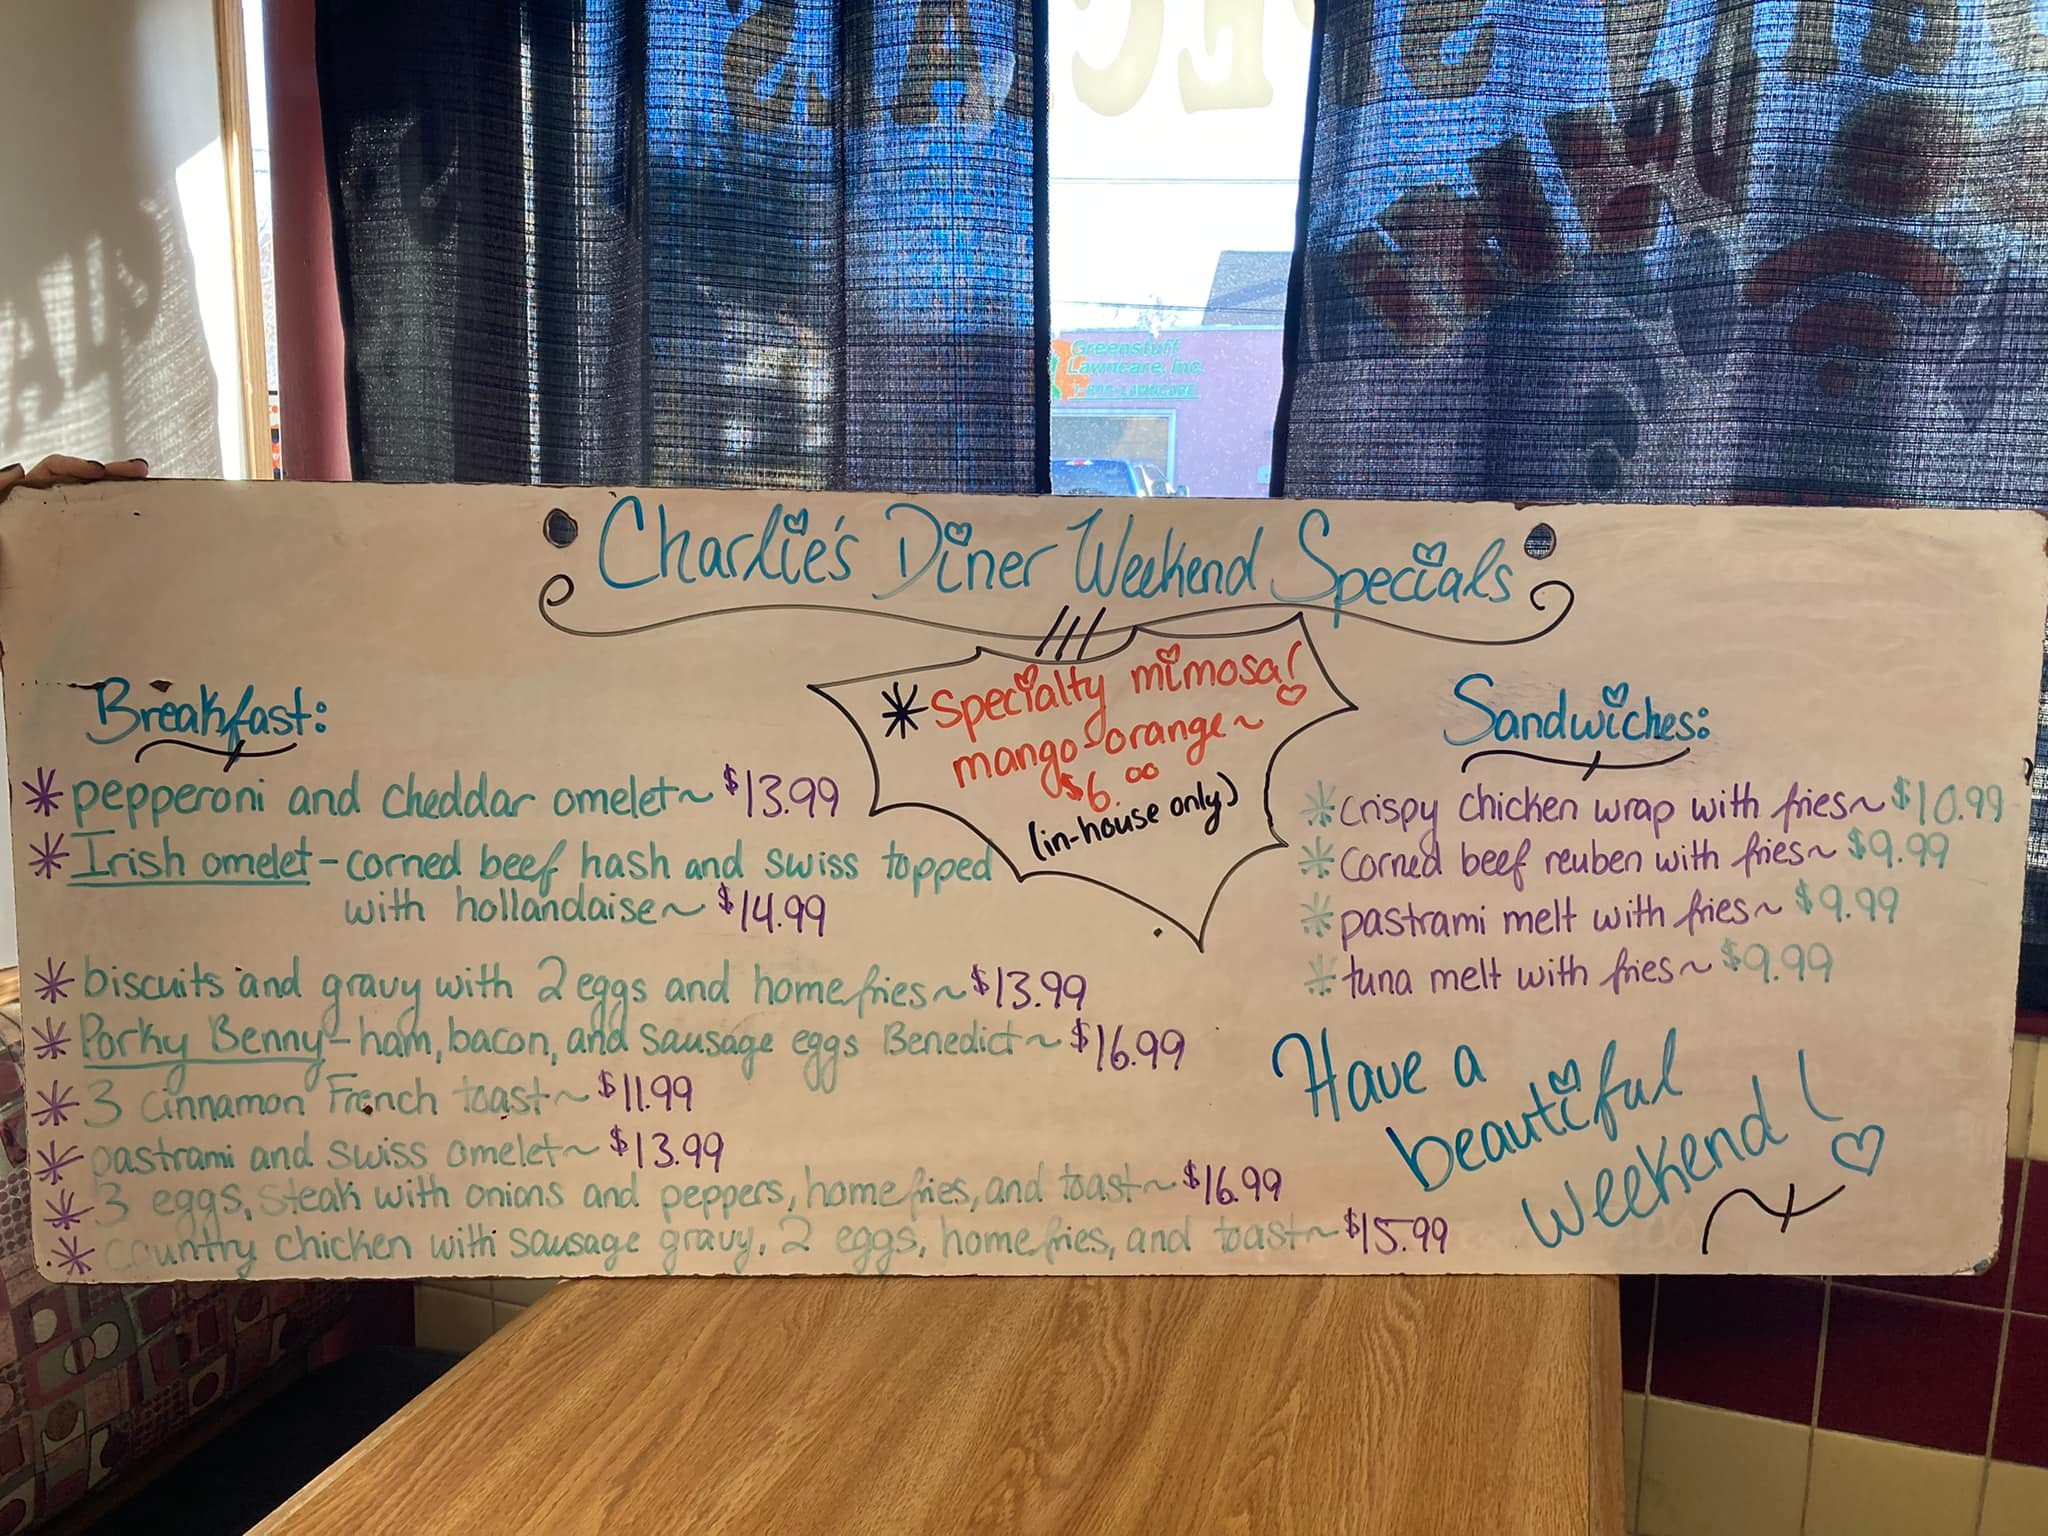 Greenstuff
Lawncare, Inc.
Charlie's Diner Weekend Specials
Breakfast:
* pepperoni and cheddar omelet ~ $13.99
* Irish omelet - corned beef hash and swiss topped
with hollandaise ~ $14.99
* biscuits and gravy with 2 eggs and homefries ~ $13.99
* Porky Benny - ham, bacon, and sausage eggs Benedict ~ $16.99
* 3 cinnamon French toast ~ $11.99
* pastrami and swiss omelet ~ $13.99
* 3 eggs, steak with onions and peppers, homefries, and toast ~ $16.99
* country chicken with sausage gravy, 2 eggs, homefries, and toast ~ $15.99
* Specialty mimosa!
mango-orange ~
$6.00
(in-house only)
Sandwiches:
* crispy chicken wrap with fries ~ $10.99
* corned beef reuben with fries ~ $9.99
* pastrami melt with fries ~ $9.99
* tuna melt with fries ~ $9.99
Have a
beautiful
weekend!